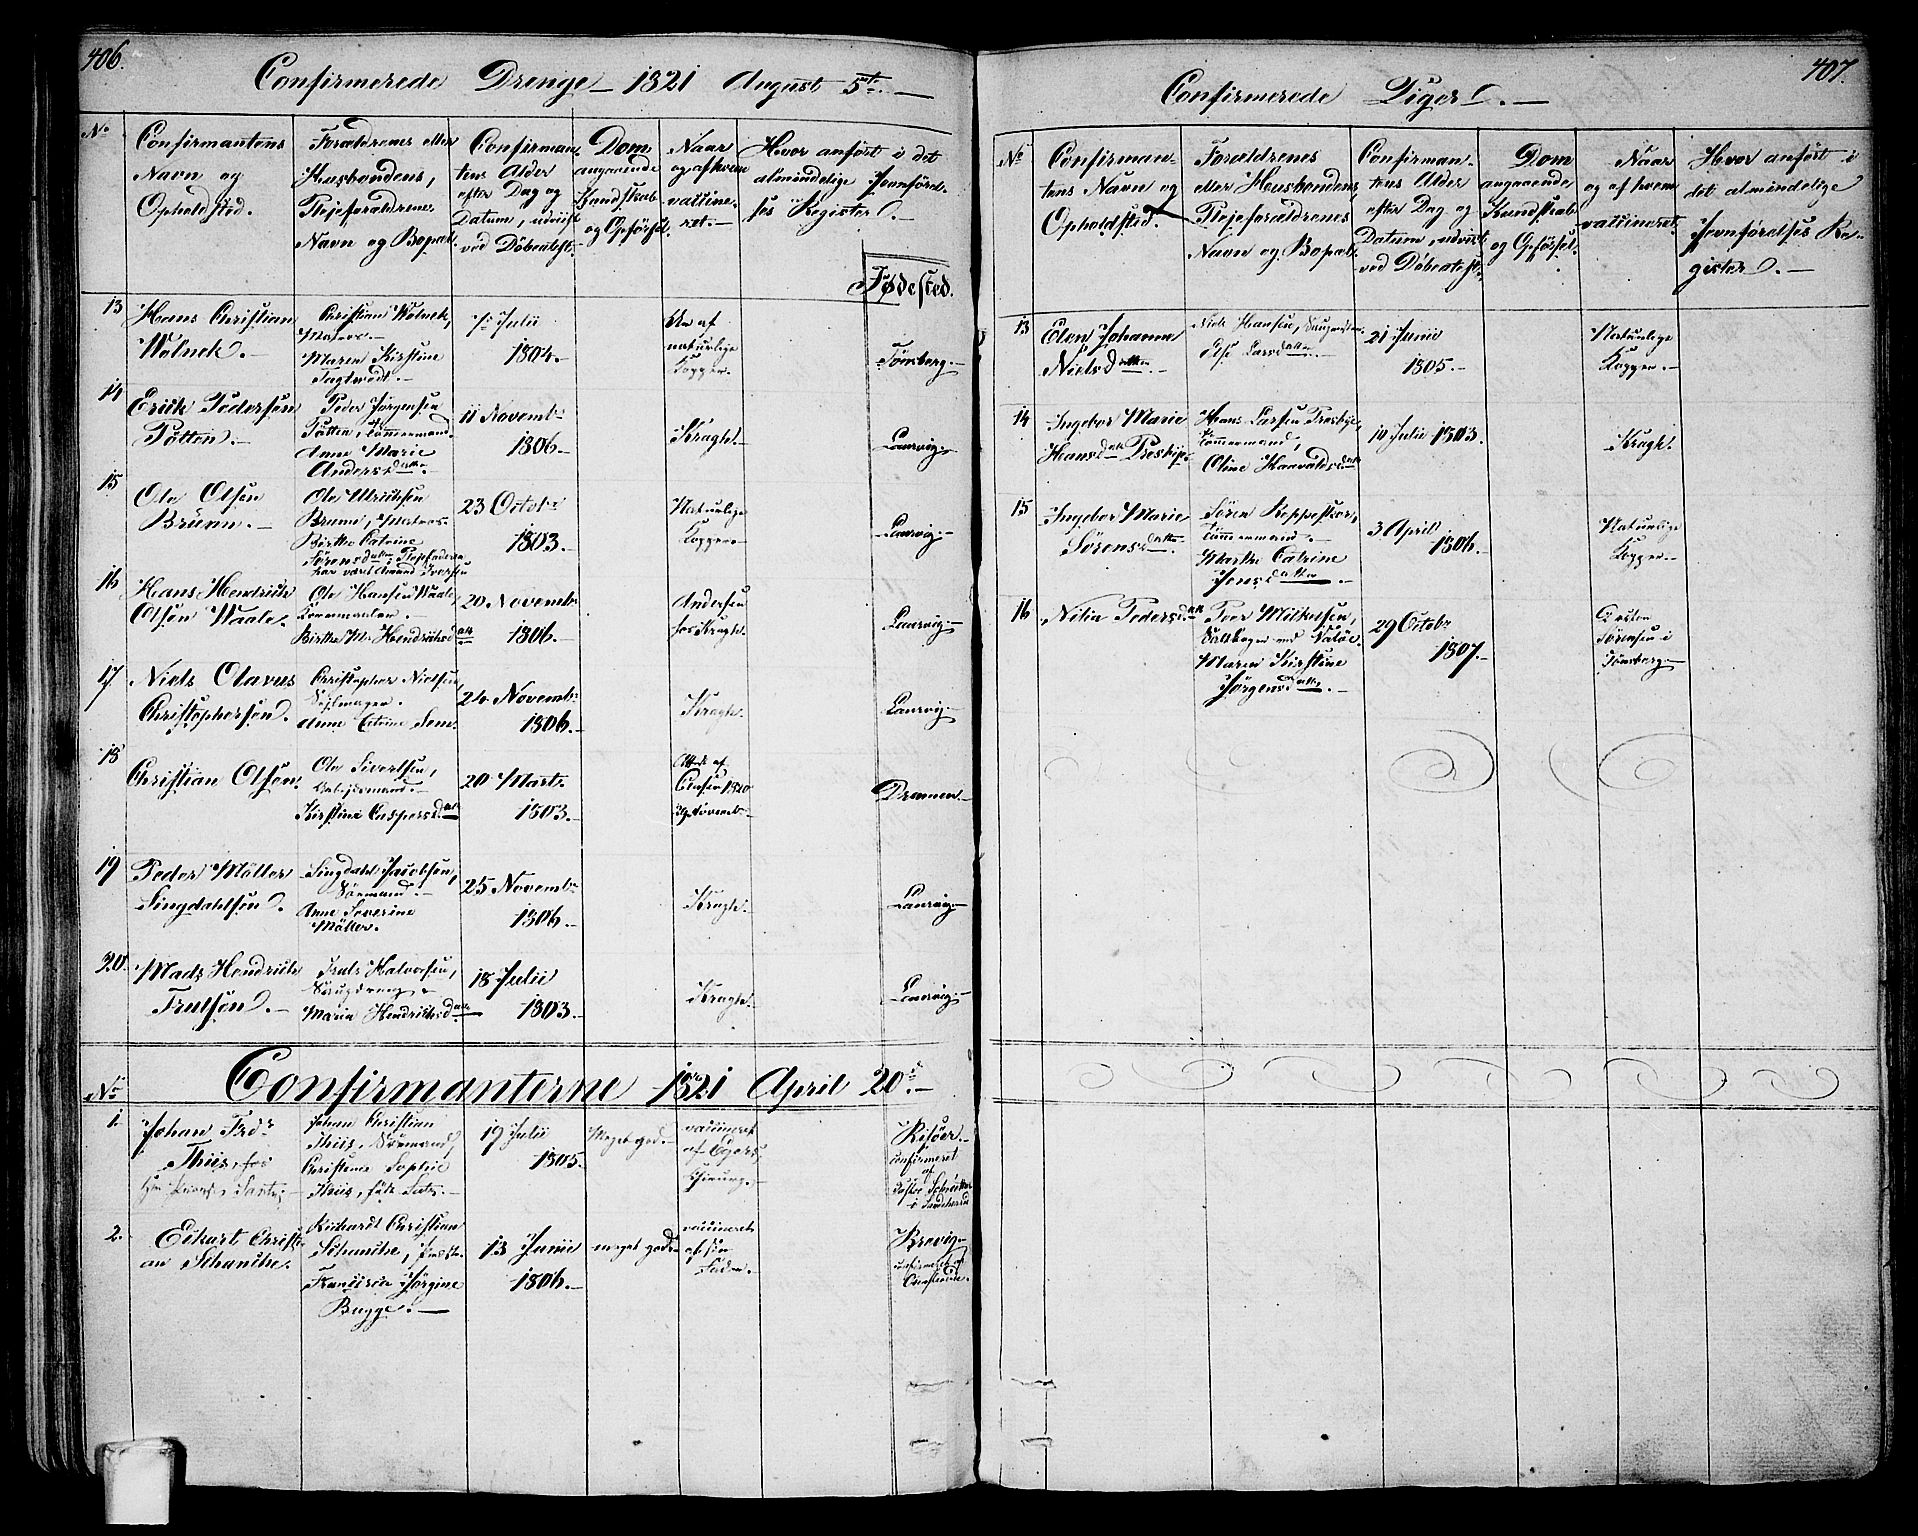 406.
Confirmerede Drenge 1821 August 5te.
No
Confirmantens
Navn og
Opholdsted.
Forældrenes eller
Husbondens,
Plejeforældrenes
Navn og Bopæl.
Confirman-
tens Alder
efter Dag og
Datum, udviist
ved Döbeatest.
Dom
angaaende
Kundskab
og Opförsel.
Naar
og af hvem
vaccine-
ret.
Hvor anfört i det
almindelige Jevnförel-
ses Register.
Födested.
13
Hans Christian
Wölnek.
Christian Wölnek,
Matros.
Maren Kirstine
7 Julii
1804.
af
naturlige
Kopper.
Tönsberg.
14
Erich Pedersön
Pötten.
Peder Jörgensen
Pötten, Tömmermand.
Anne Marie
Andersdatter.
11 Novembr
1806.
Kragh.
Laurvig.
15
Ole Olsön
Brünn.
Ole Ulrichsen
Brunn, Matros.
Birthe Catrine
Sörensdatter, Plejefaderen
har været Amund Iversen
23 Octobr
1803.
Naturlige
Kopper.
Laurvig.
16
Hans Hendrich
Olsön Waale.
Ole Hansen Waale,
Birthe Ml. Hendrichsdatt
20 Novembr
1806.
Andersen
hos Kragh.
Laurvig.
17
Niels Olavus
Christophersön.
Christopher Nielsen,
Sejlmager.
Anne Catrine
24 Novembr
1806.
Kragh.
Laurvig.
18
Christian Olsön.
Ole Sivertsen,
Arbejdsmand.
Kirstine Caspersdatt
20 Marts
1803.
Attest af
1820
29 Novemb.
Drammen.
19
Peder Möller
Lingdahlsön.
Lingdahl Jacobsen,
Söemand.
Anne Severine
Möller.
25 Novembr
1806.
Kragh.
Laurvig.
20.
Mads Hendrich
Trulsön.
Truls Halvorsen,
Maria Hendrichsdatt
18 Julii
1803.
Kragh.
Laurvig.
No
Confirmanterne 1821 April 20de.
1.
Johan Fredr
Thiis, hos
Johan Christian
Thiis, Söemand,
Christine Sophie
Thiis, föd
19 Julii
1805.
Meget god.
vaccineret
af Egers,
Chirurg.
Risöer.
confirmeret
af
Pastor
i
2.
Eckart Christi-
an Schanche.
Richardt Christian
Schanche,
Francisca Jörgine
Bugge.
13 Junii
1806.
meget god.
vaccineret
af sin
Fader.
Brevig
confirmeret af
407.
Confirmerede Piger.
No
Confirman-
tens Navn og
Opholdsted.
Forældrenes
eller Husbondens,
Plejeforældrenes
Navn og Bopæl.
Confirman-
tens Alder
efter Dag og
Datum, udviist
ved Döbeatest.
Dom
angaaende
Kundskab
og Opförsel.
Naar
og af hvem
vaccineret.
Hvor anfört i
det almindelige
Jevnförelses Re-
gister.
13
Elen Johanne
Nielsdatter.
Niels Hansen,
Else Larsdatter.
21 Junii
1805.
Naturlige
Kopper.
14
Ingebor Marie
Hansdatt Presbye
Hans Larsen Presbye,
Tömmermand,
Oline Haavaldsdatt
10 Julii 1803.
Kragh.
15
Ingebor Marie
Sörensdatter.
Sören Keppeskor,
Tömmermand.
Marthe Catrine
Jensdatter.
3 April
1806.
Naturlige
Kopper.
16
Nilia Pedersdatt
Peer Mikkelsen,
Maren Kirstine
Jörgensdatter.
29 Octobr
1807.
Sörensen i
Tönsberg.